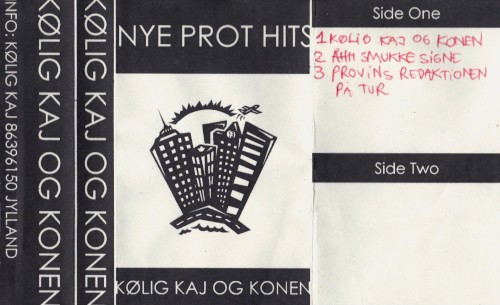 INFO: KØLIG KAJ 86396150 JYLLAND
KØLIG KAJ OG KONEN
KØLIG KAJ OG KONEN
NYE PROT HITS
KØLIG KAJ OG KONEN
Side One
1 KØLIG KAJ OG KONEN
2 ÅHH SMUKKE SIGNE
3 PROVINS REDAKTIONEN
PÅ TUR
Side Two